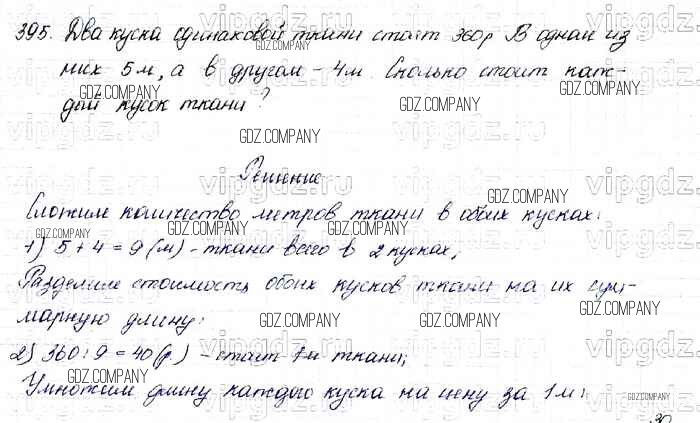 395. Два куска одинаковой ткани стоят 360р В одном из
них 5м, а в другом - 4м. Сколько стоит каж-
дый кусок ткани?
Решение
Сложим количество метров ткани в обоих кусках:
1) 5 + 4 = 9 (м) - ткани всего в 2 кусках;
Разделим стоимость обоих кусков ткани на их сум-
марную длину:
2) 360 : 9 = 40 (р.) - стоит 1м ткани;
Умножим длину каждого куска на цену за 1м:
vipgdz.ru
GDZ.COMPANY